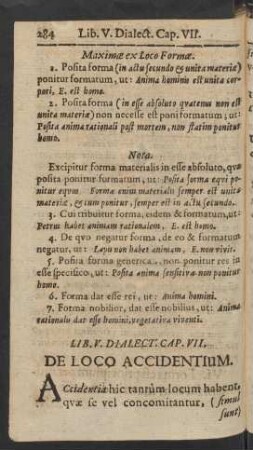 284 Lib. V. Dialect. Cap. VII.
Maximæ ex Loco Formæ.
1. Posita forma (in actu secundo & unita materiæ)
ponitur formatum, ut: Anima hominis est unita cor-
pori, E. est homo.
2. Posita forma (in esse absoluto quatenus non est
unita materiæ) non necesse est poni formatum; ut:
Posita anima rationali post mortem, non statim ponitur
homo.
Nota.
Excipitur forma materialis in esse absoluto, quæ
posita ponitur formatum, ut: Posita forma equi po-
nitur equus. Forma enim materialis semper est unita
materiæ, & cum ponitur, semper est in actu secundo.
3. Cui tribuitur forma, eidem & formatum, ut:
Petrus habet animam rationalem, E. est homo.
4. De quo negatur forma, de eo & formatum
negatur, ut: Lapis non habet animam, E. non vivit.
5. Posita forma generica, non ponitur res in
esse specifico, ut: Posita anima sensitiva non ponitur
homo.
6. Forma dat esse rei, ut: Anima homini.
7. Forma nobilior, dat esse nobilius, ut: Anima
rationalis dat esse homini, vegetativa viventi.
LIB. V. DIALECT. CAP. VII.
DE LOCO ACCIDENTIUM.
ACcidentia hic tantùm locum habent,
quæ se vel concomitantur, (simul
sunt)